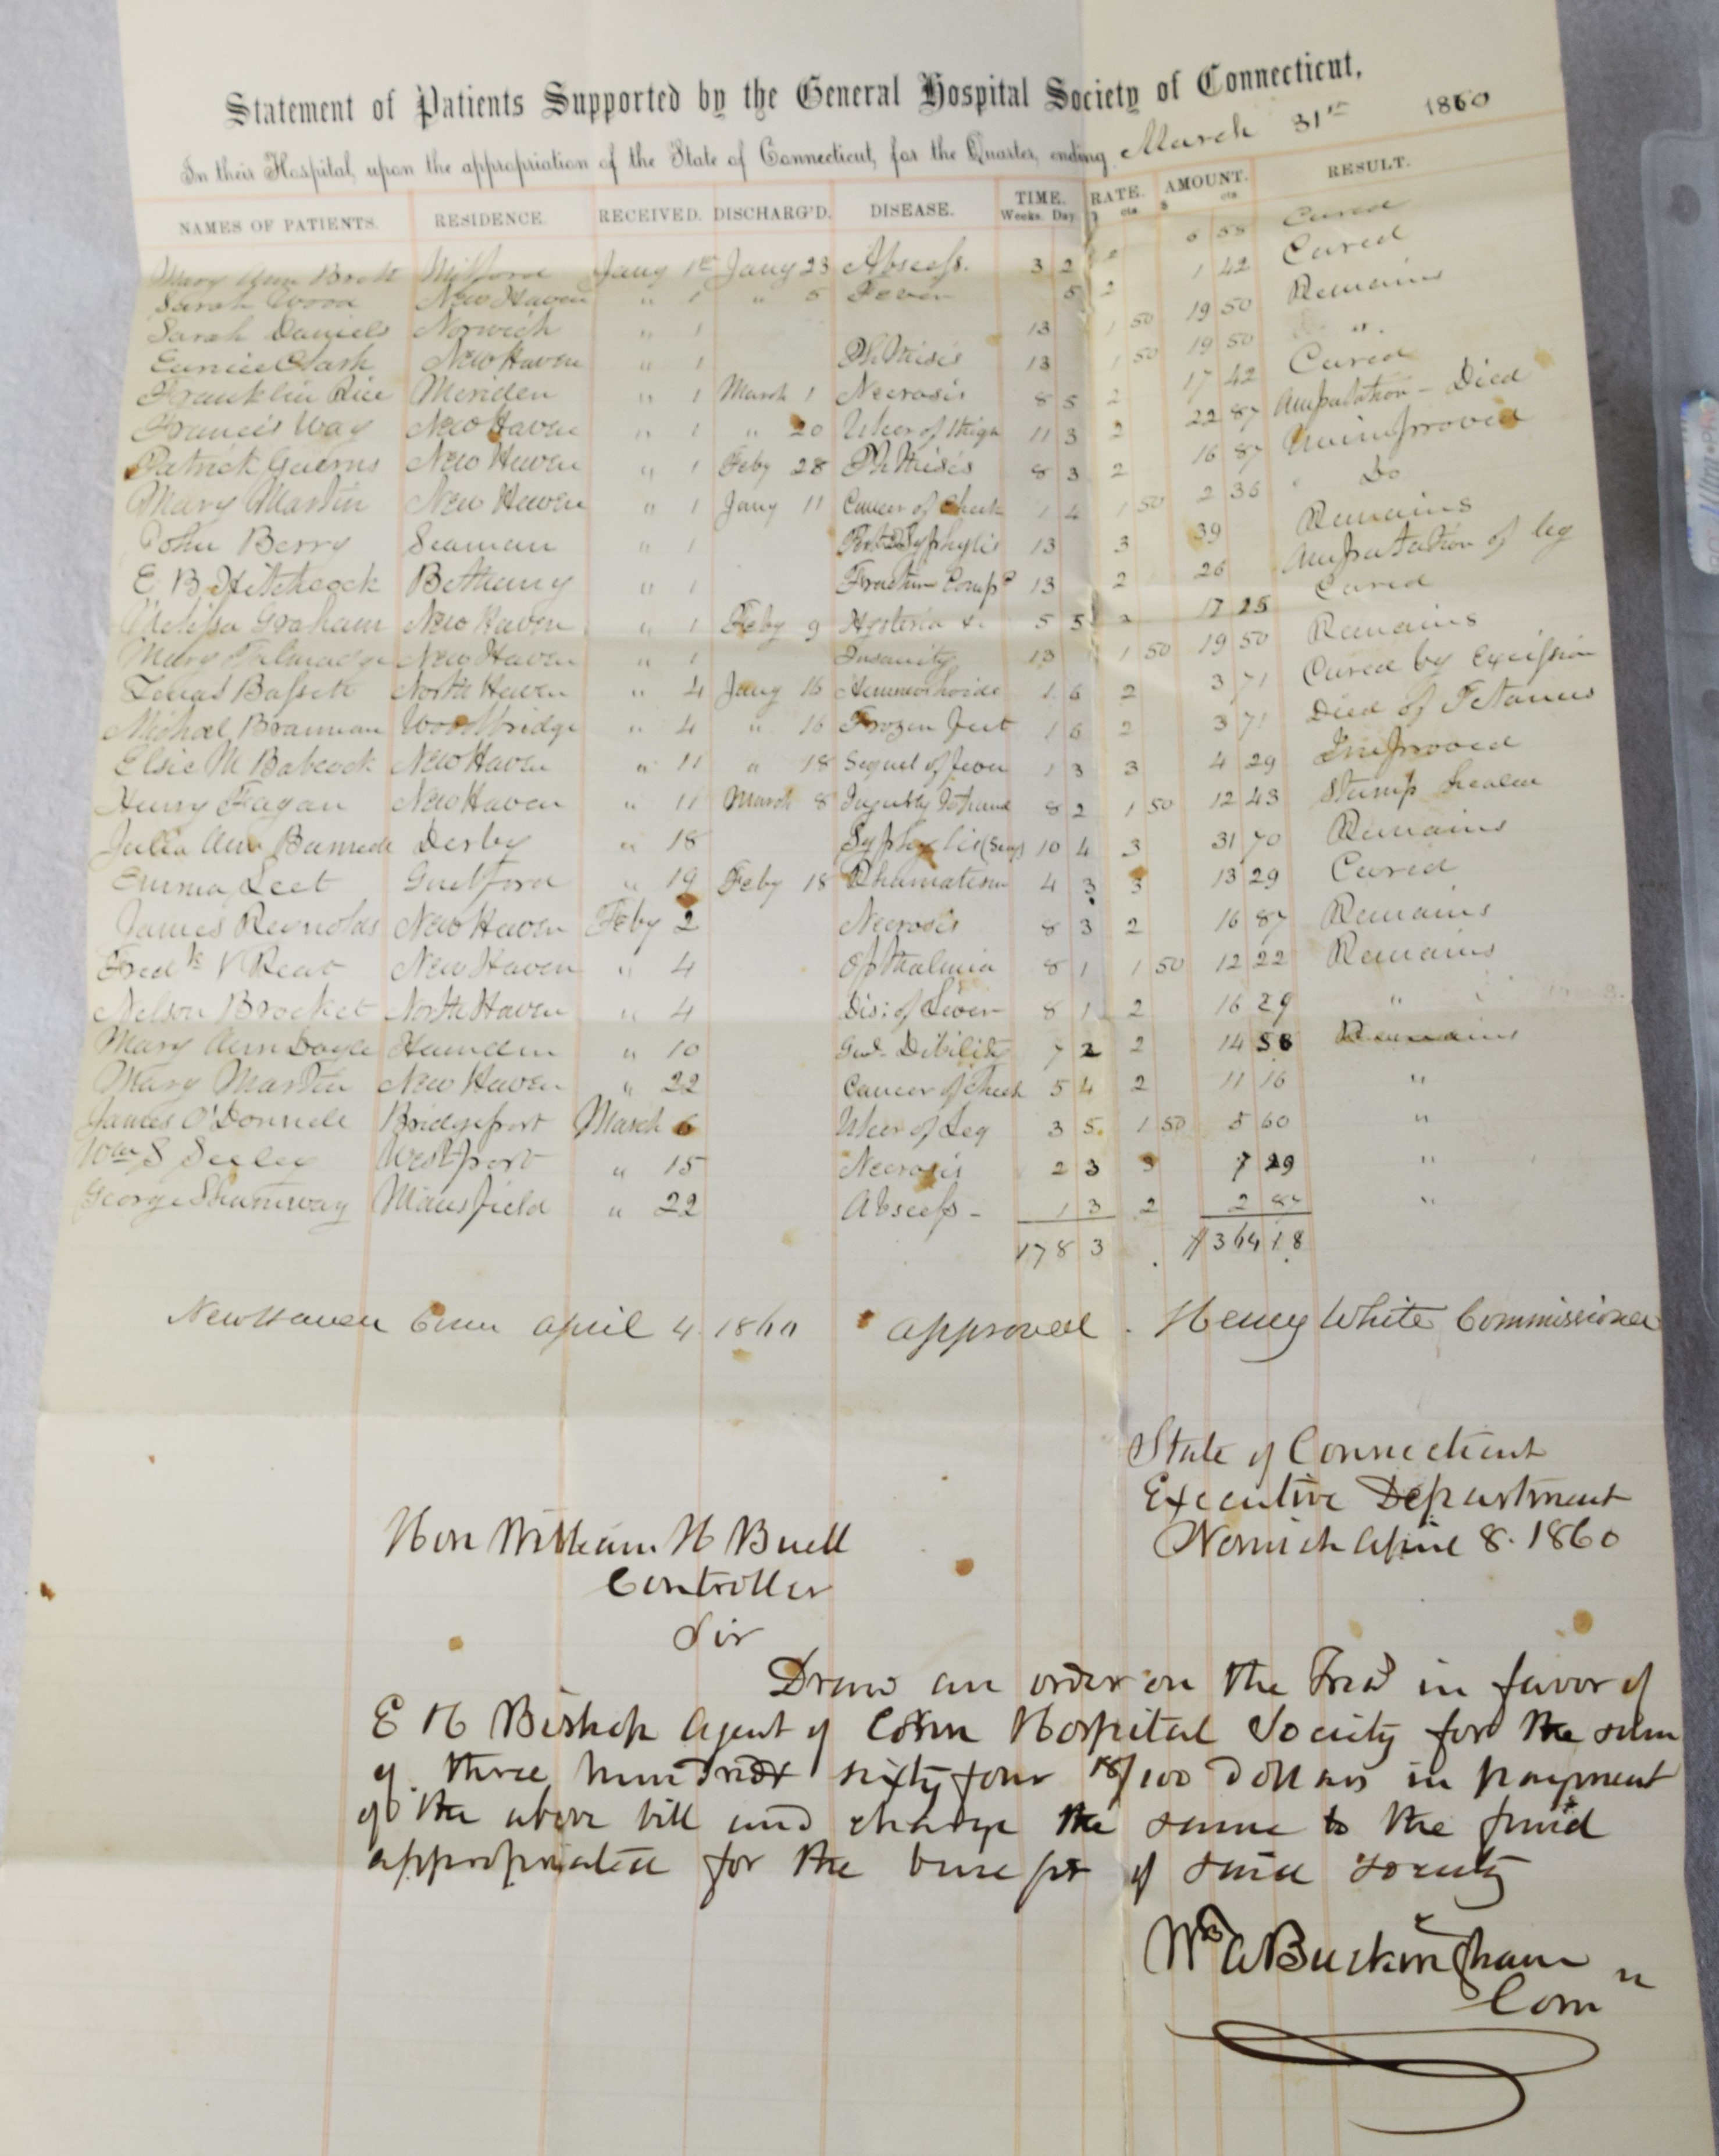 Statement of Patients Supported by the General Hospital Society of Connecticut,
In their Hospital, upon the appropriation of the State of Connecticut, for the Quarter, ending March 31st 1860
NAMES OF PATIENTS. RESIDENCE. RECEIVED. DISCHARG'D. DISEASE. TIME. Weeks. Day. RATE. $ cts. AMOUNT. $ cts. RESULT.
Mary Ann Brett Milford Jany 1st Jany 23 Abscess. 3 2 2 6 58 Cured
Sarah Wood New Haven " 1 " 5 Fever 5 2 1 42 Cured
Sarah Daniels Norwich " 1 13 1 50 19 50 Remains
Eunice Clark New Haven " 1 Phthisis 13 1 50 19 50 ".
Franklin Rice Meriden " 1 March 1 Necrosis 8 5 2 17 42 Cured
Francis Way New Haven " 1 " 20 Ulcer of thigh 11 3 2 22 87 Amputation - Died
Patrick New Haven " 1 Feby 28 Phthisis 8 3 2 16 87 Unimproved
Mary Martin New Haven " 1 Jany 11 Cancer of Cheek 1 4 1 50 2 36 Do
John Berry Seaman " 1 Syphylis 13 3 39 Remains
E. B. Hitchcock Bethany " 1 Fracture Compd 13 2 26 Amputation of leg
Melissa Graham New Haven " 1 Feby 9 Hysteria &c 5 5 17 25 Cured
Mary Talmadge New Haven " 1 Insanity 13 1 50 19 50 Remains
Bassett North Haven " 4 Jany 16 Hemmorhoids 1 6 2 3 71 Cured by Excission
Michael Brannan Woodbridge " 4 " 16 Frozen feet 1 6 2 3 71 Died of Tetanus
Elsie M Babcock New Haven " 11 " 18 Sequel of fever 1 3 3 4 29 Improved
Henry Fagan New Haven " 11 March 8 8 2 1 50 12 43 Stump healed
Julia Ann Derby " 18 Syphylis 10 4 3 31 70 Remains
Emma Leet Guilford " 19 Feby 18 Rhumatism 4 3 3 13 29 Cured
James Reynolds New Haven Feby 2 Necrosis 8 3 2 16 87 Remains
Fredk V Reat New Haven " 4 Opthalmia 8 1 1 50 12 22 Remains
Nelson Brocket North Haven " 4 Dis: of Liver 8 1 2 16 29 "
Mary Ann Doyle Hamden " 10 Genl Dibility 7 2 2 14 58 Remains
Mary Martin New Haven " 22 Cancer of Cheek 5 4 2 11 16 "
James O'Donnell Bridgeport March 6 Ulcer of Leg 3 5 1 50 5 60 "
Wm S Seeley Westport " 15 Necrosis 2 3 3 7 29 "
George Shumway Mansfield " 22 Abscess - 1 3 2 2 87 "
178 3 $364 18
New Haven Conn April 4. 1860 approved. Henry White Commissioner
State of Connecticut
Executive Department
Norwich April 8. 1860
Hon William H Buell
Controller
Sir
Draw an order on the Tread in favor of
E H Bishop Agent of Conn Hospital Society for the sum
of three hundred sixty four 18/100 Dollars in payment
of the above bill and charge the same to the fund
appropriated for the benefit of said society
Wm A Buckingham
Comn